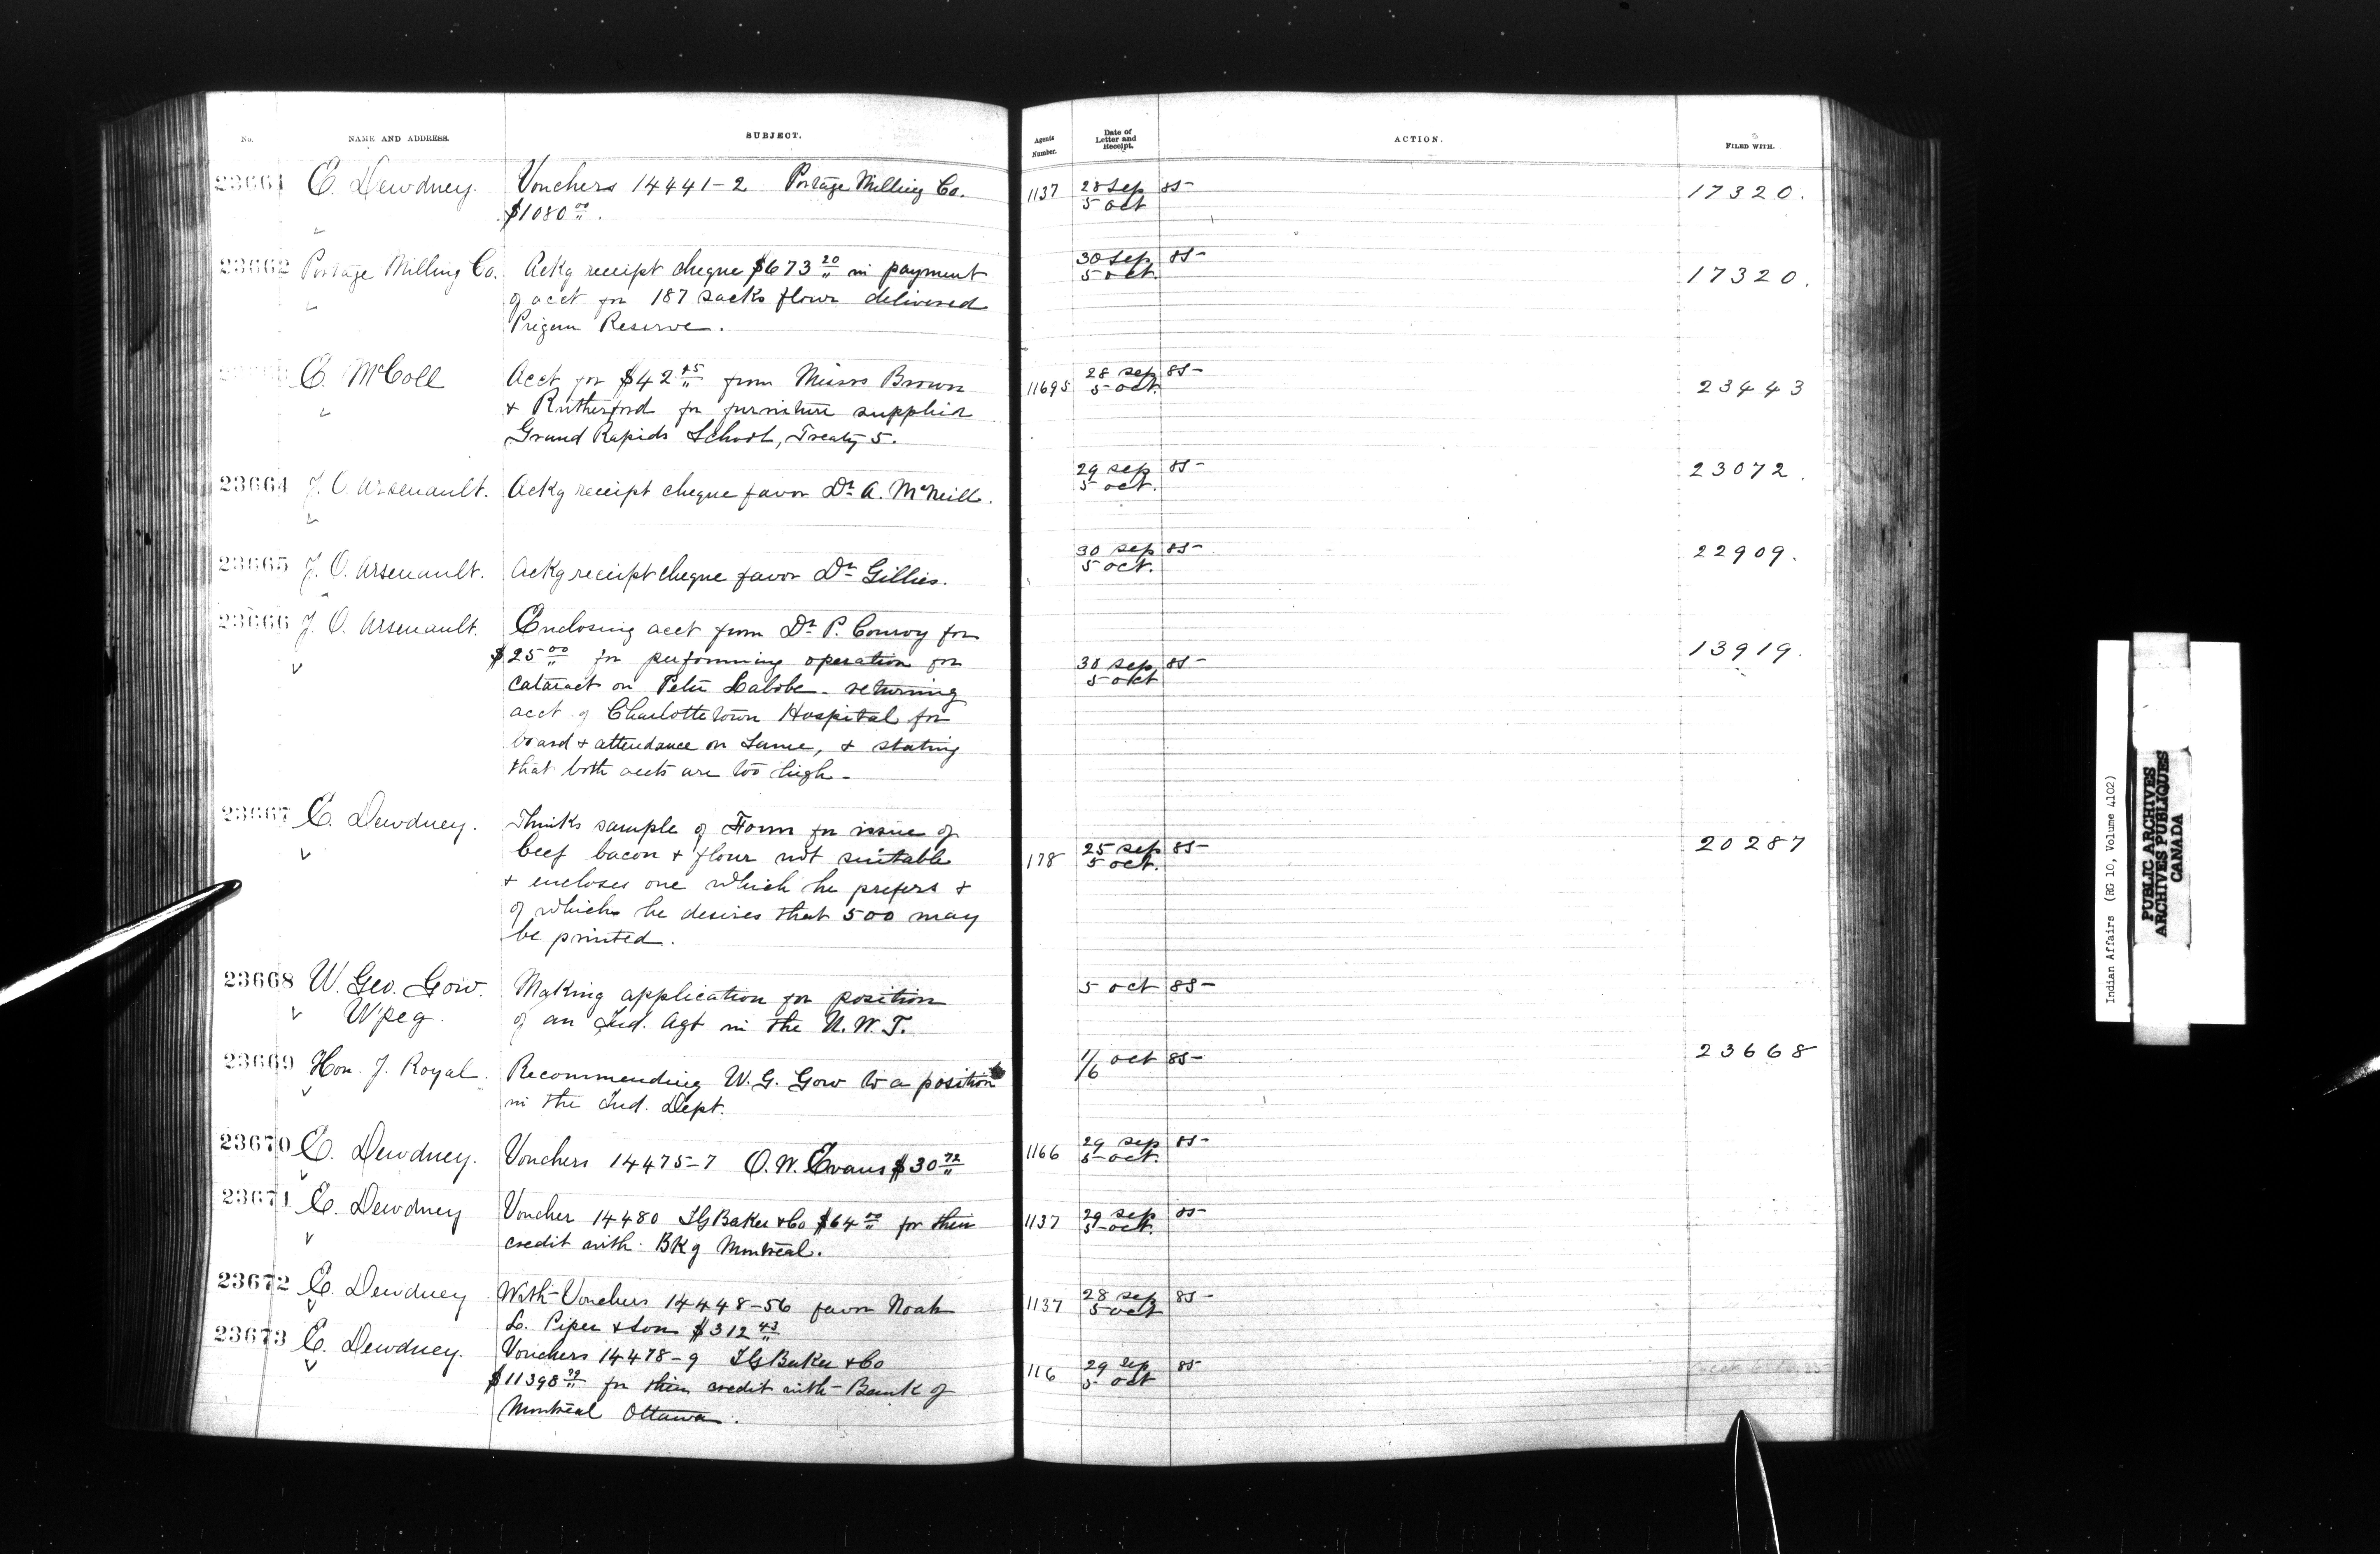 No. NAME AND ADDRESS. SUBJECT. Agents Number. Date of Letter and Receipt. ACTION. FILED WITH.
23661 E. Dewdney. Vouchers 14441-2 Portage Milling Co. 1137 28 Sep 85 17320.
$1080 00. 5 oct
23662 Portage Milling Co. Ackg receipt cheque $673 20 in payment 30 Sep 85 17320.
of acct for 187 sacks flour delivered 5 oct.
Peigan Reserve.
E. McColl Acct for $42 45 from Messrs Brown 11695 28 sep 85 23443
& Rutherford for furniture supplied 5 oct.
Grand Rapids School, Treaty 5.
23664 J. O. Arsenault. Ackg receipt cheque favor Dr A. McNeill. 29 sep 85 23072.
5 oct.
23665 J. O. Arsenault. Ackg receipt cheque favor Dr Gillies. 30 sep 85 22909.
5 oct.
23666 J. O. Arsenault. Enclosing acct from Dr P. Conroy for 13919.
$25 00 for performing operation for 30 sep 85
cataract on Peter Labobe - returning 5 oct
acct of Charlottetown Hospital for
board & attendance on same, & stating
that both accts are too high -
23667 E. Dewdney. Thinks sample of Form for issue of 20287
beef bacon & flour not suitable 178 25 sep 85
& encloses one which he prefers & 5 oct.
of which he desires that 500 may
be printed.
23668 W. Geo. Gow. Making application for position 5 oct 85
Wpeg. of an Ind. Agt in the N. W. T.
23669 Hon. J. Royal. Recommending W. G. Gow to a position 1/6 oct 85 23668
in the Ind. Dept.
23670 E. Dewdney. Vouchers 14475-7 O. W. Evans $30 72 1166 29 sep 85
5 oct.
23671 E. Dewdney Voucher 14480 I G Baker & Co $64 00 for their 1137 29 sep 85
credit with Bk of Montreal. 5 oct.
23672 E. Dewdney With Vouchers 14448-56 favor Noah 1137 28 sep 85
L. Piper & Son $312 43 5 oct
23673 E. Dewdney. Vouchers 14478-9 I G Baker & Co 116 29 sep 85
$11398 92 for their credit with Bank of 5 oct
Montreal Ottawa.
Indian Affairs (RG 10, Volume 4102)
PUBLIC ARCHIVES
ARCHIVES PUBLIQUES
CANADA